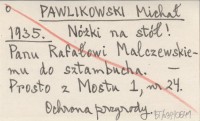 PAWLIKOWSKI Michał
1935. Nóżki na stół!
Panu Rafałowi Malczewskie-
mu do sztambucha. —
Prosto z Mostu 1, nr 24.
Ochrona przyrody.